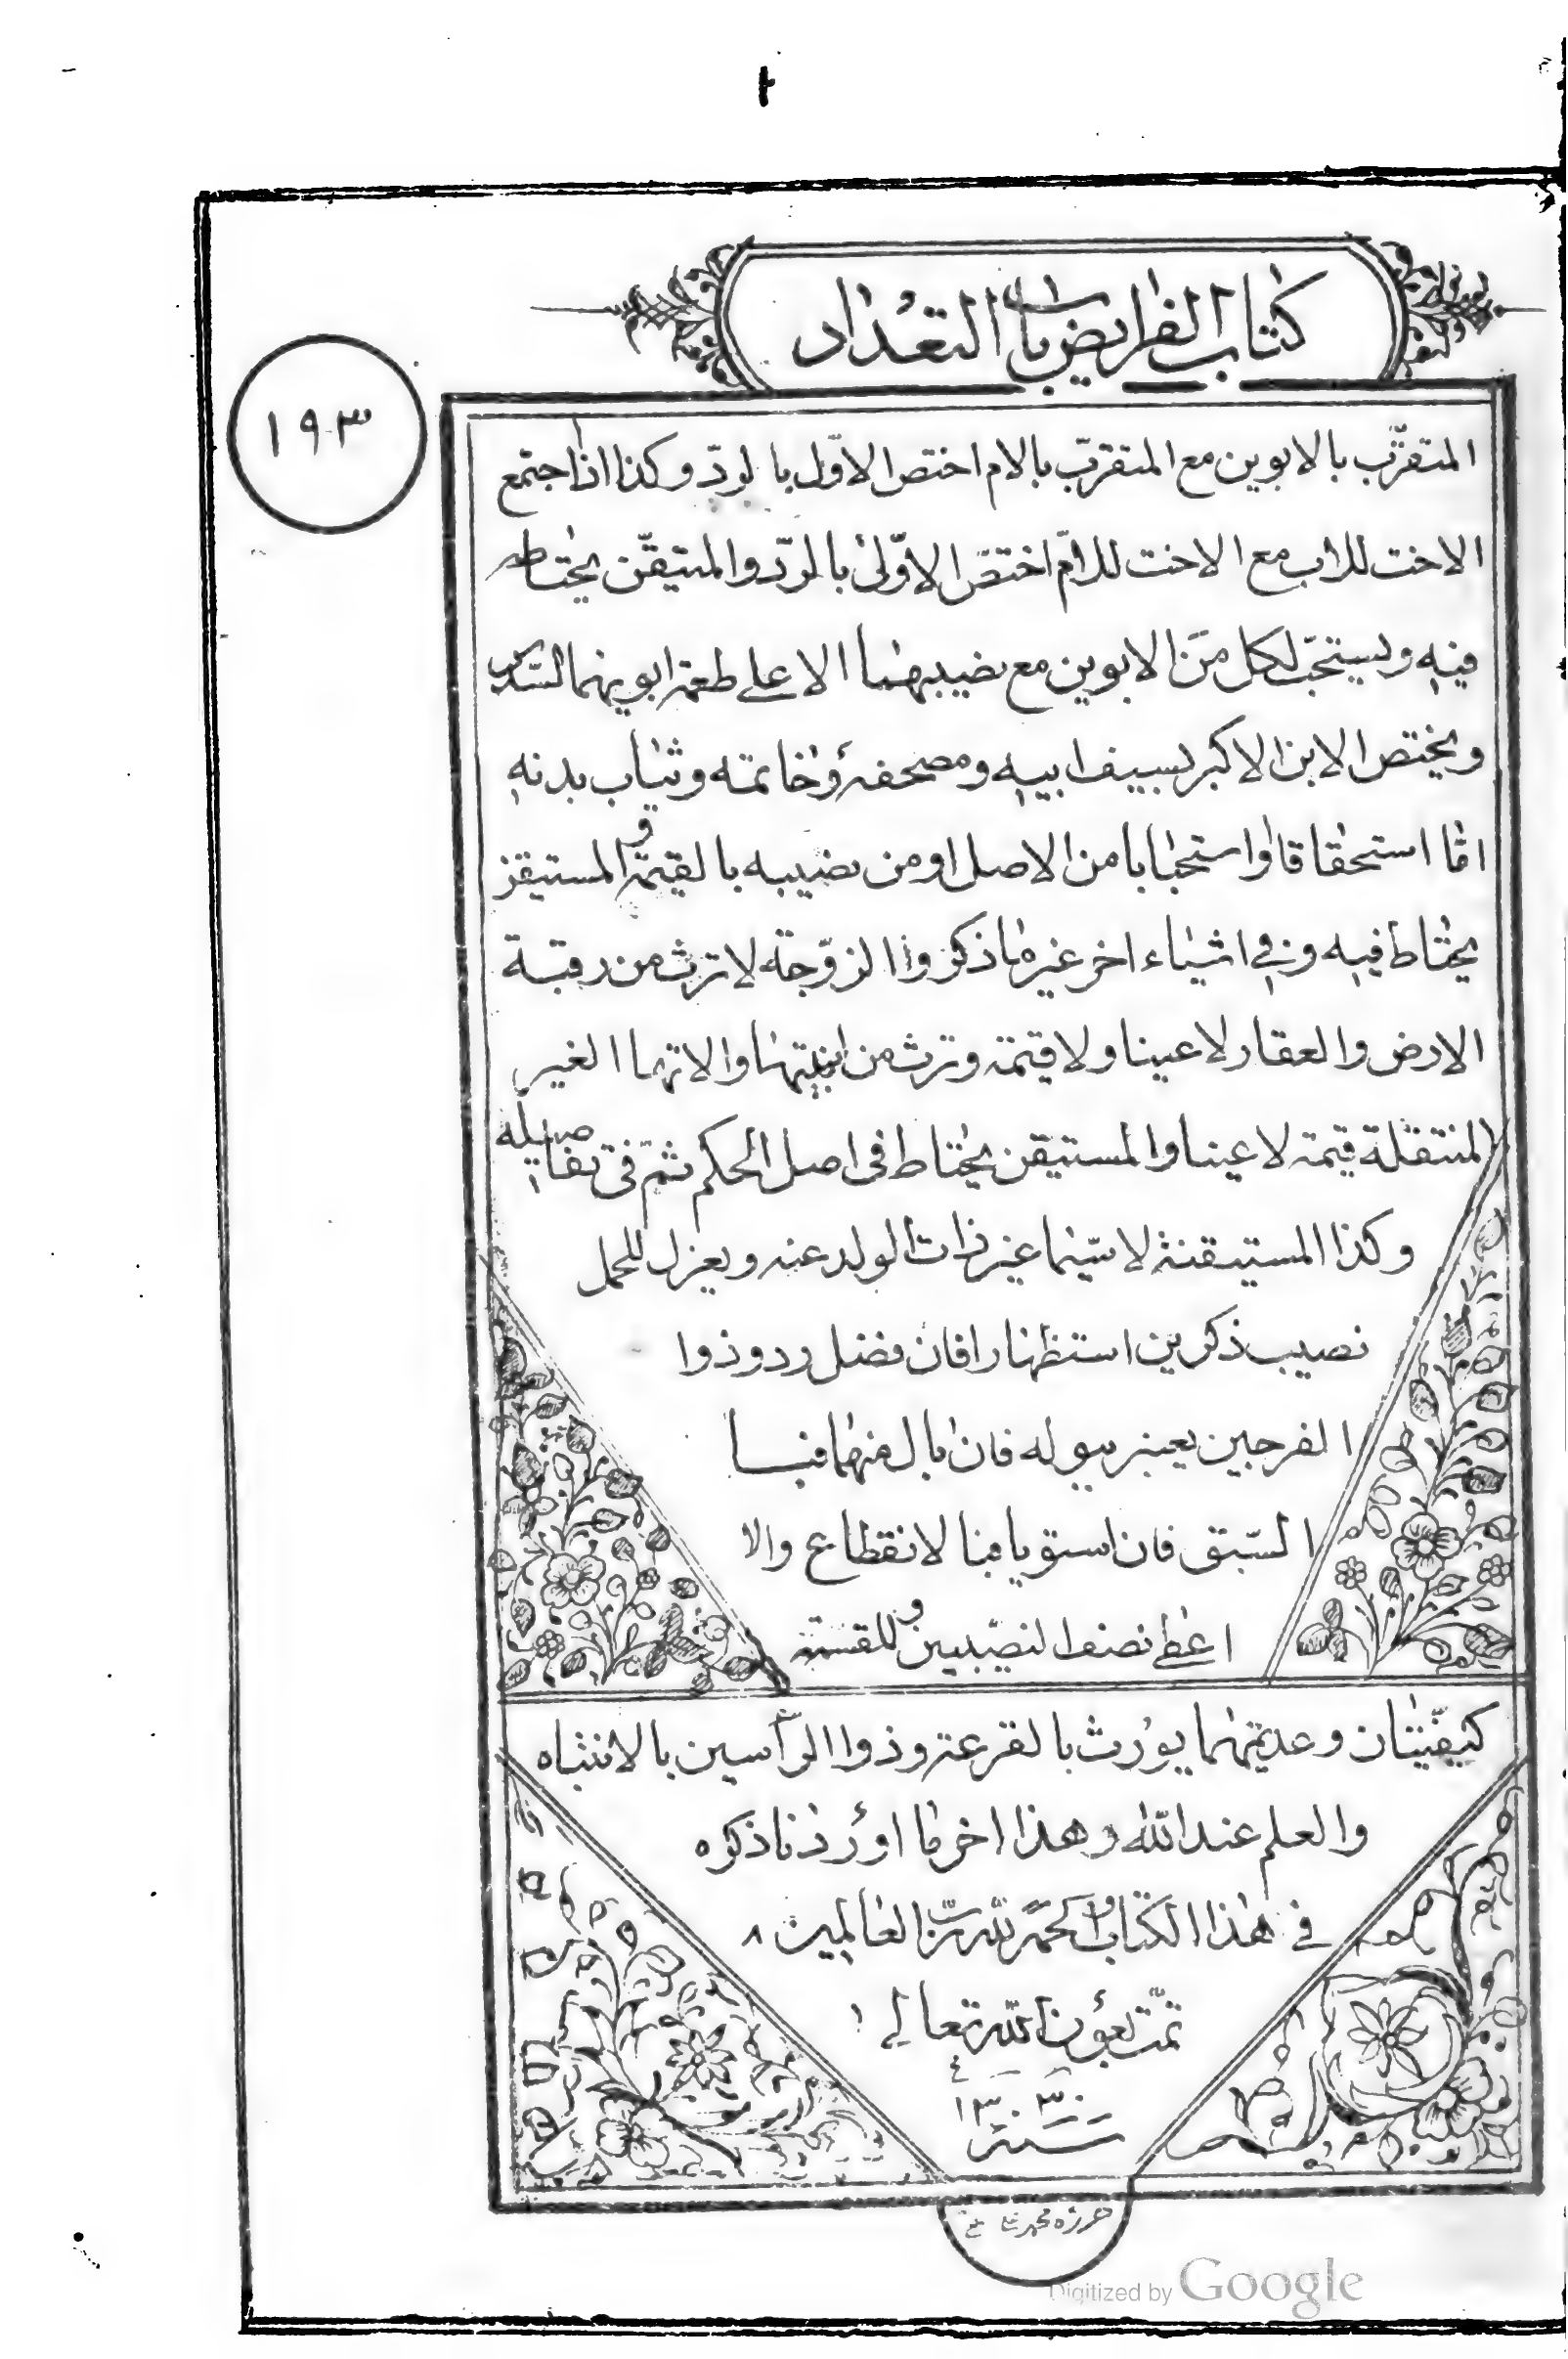 كتاب الفرايض بات التعداد
١٩٣
المتقرّب بالابوين مع المتقرّب بالام اختص الاوّل بالردّ وكذا اذا اجتمع
الاخت للاب مع الاخت للامّ اختصّ الاوّلى بالردّ والمتيقّن يحتاط
فيه ويستحبّ لكل من الابوين مع نصيبهما الاعلى طعمة ابويهما السّدس
ويختص الابن الاكبر بسيف ابيه ومصحفه وخاتمه وثياب بدنه
امّا استحقاقا او استحبابا من الاصل او من نصيبه بالقيمة والمستيقن
يحتاط فيه وفي اشياء اخر غير ما ذكروا الزّوجة لا ترث من رقبة
الارض والعقار لا عينا ولا قيمة وترث من ابنيتها والاتهما الغير
المنتقلة قيمة لا عينا والمستيقن يحتاط في اصل الحكم ثمّ في تفاصيله
وكذا المستيقنة لا سيّما غير ذات الولد عنه ويعزل للحمل
نصيب ذكرين استظهارا فان فضل ردّ وذوا
الفرجين يعتبر ببوله فان بال منهما فبـا
السّبق فان استويا فبالانقطاع والا
اعطى نصف النصيبين وللقسمة
كيفيّتان وعديمهما يورث بالقرعة وذوا الرّأسين بالانتباه
والعلم عند اللّه وهذا اخر ما اوردنا ذكره
في هذا الكتاب والحمد للّه ربّ العالمين ٨
تمّت بعون اللّه تعالى
١٣٠٣
سنة
حرره محمد
Digitized by Google